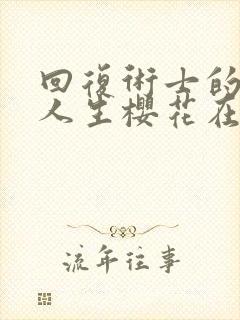 回復術士的
人生櫻花在
流年往事